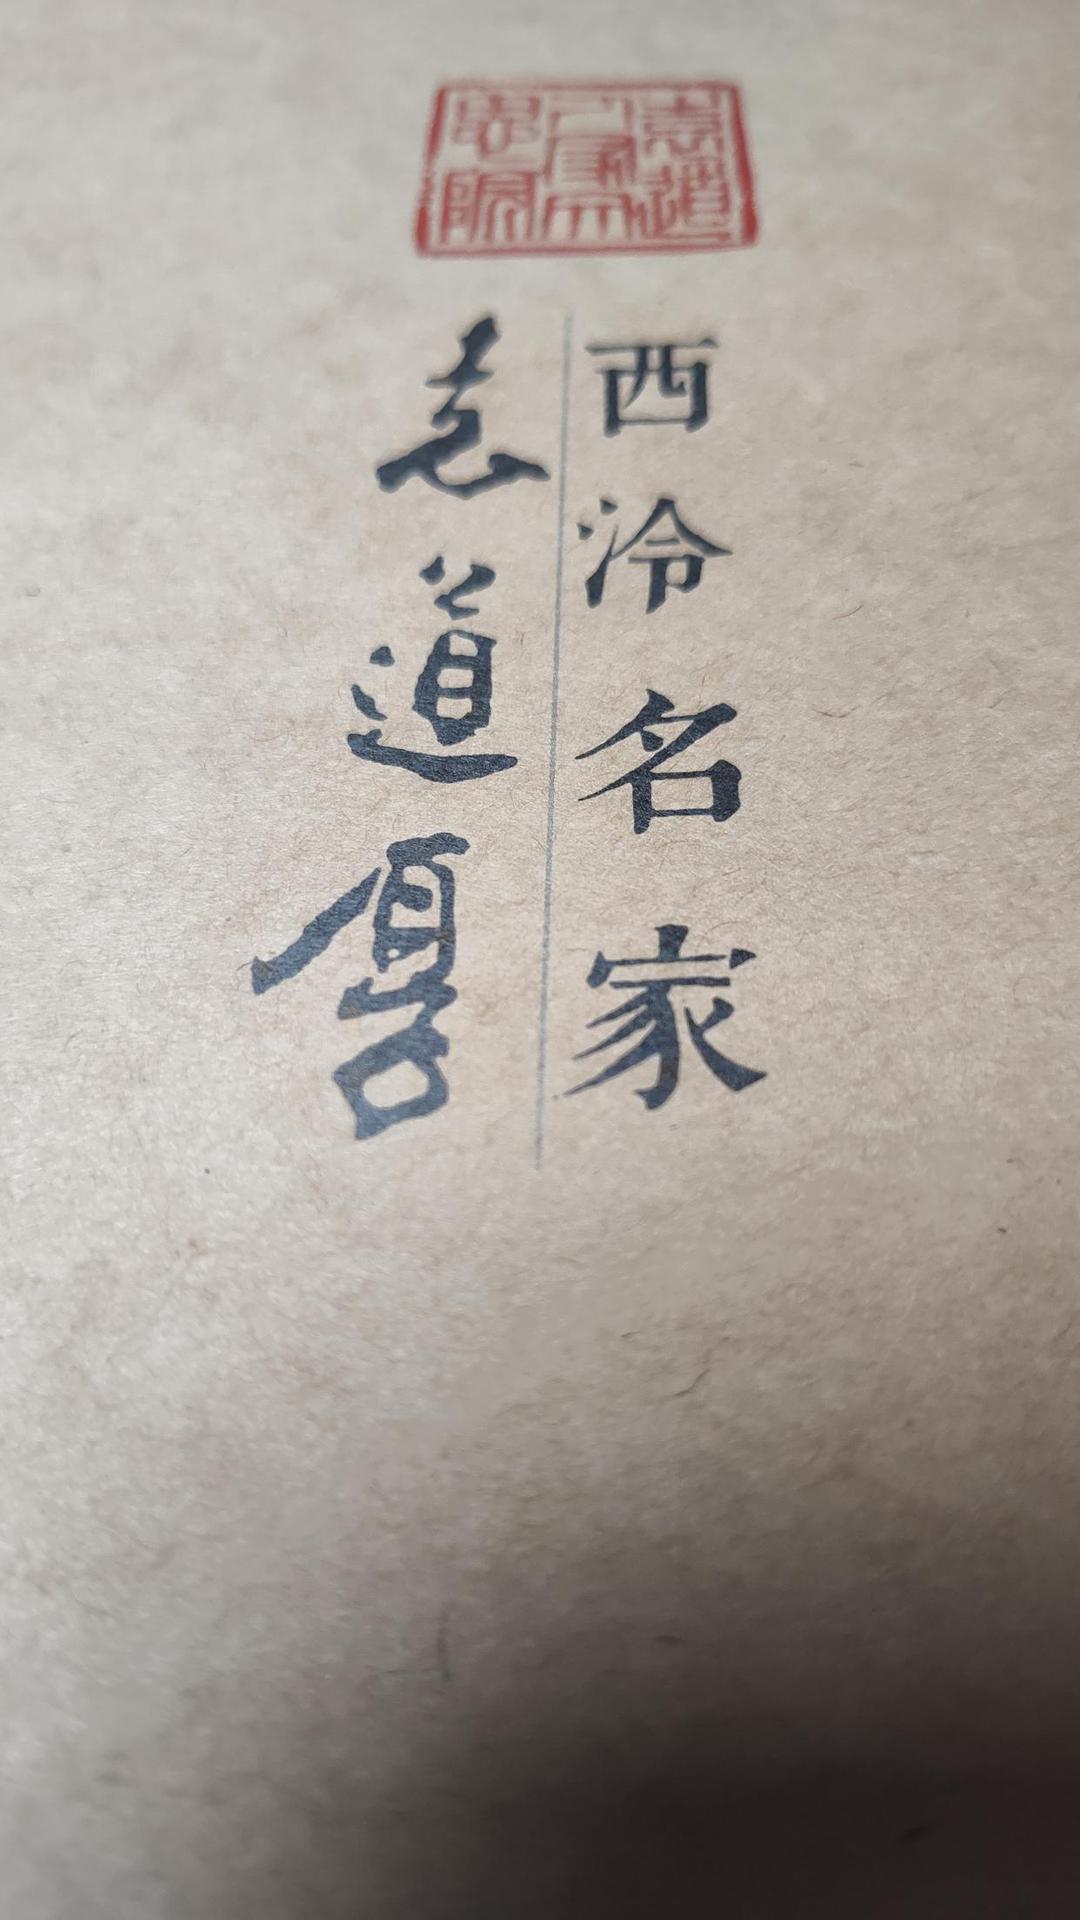 西泠名家
袁道厚